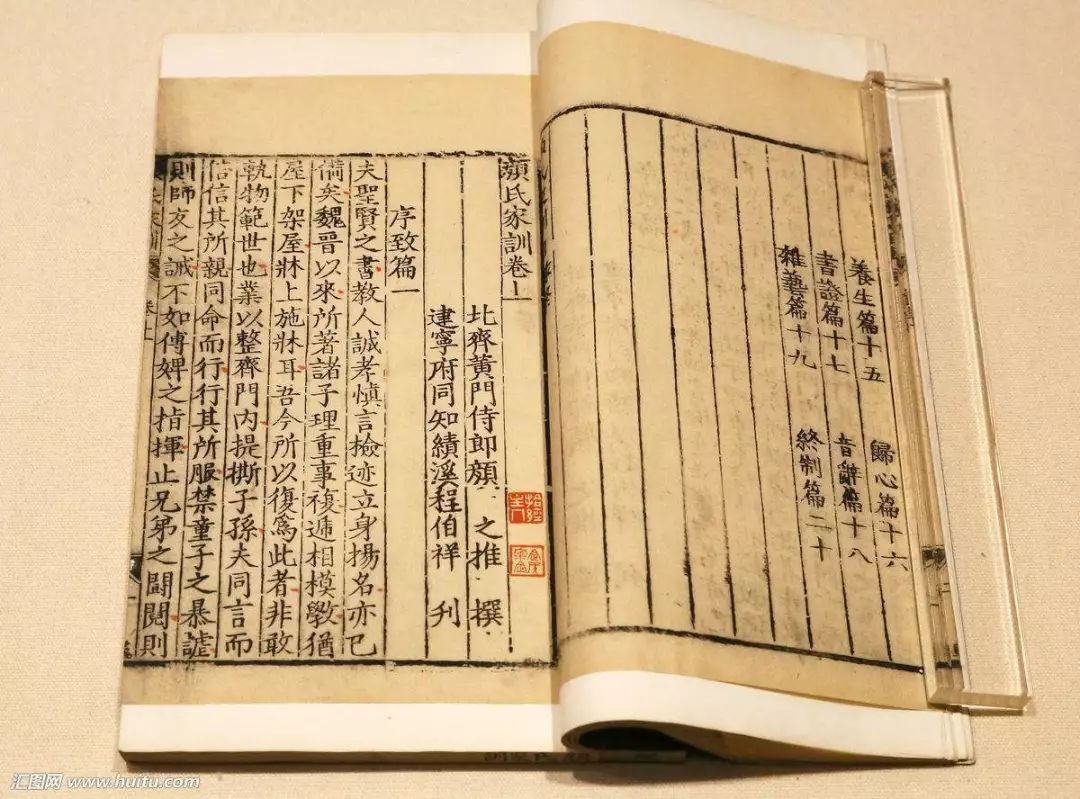 養生篇十五 歸心篇十六
書證篇十七 音辭篇十八
雜藝篇十九 終制篇二十
顏氏家訓卷上
北齊黃門侍郎顏 之推 撰
建寧府同知績溪程伯祥 刊
序致篇一
夫聖賢之書教人誠孝慎言檢迹立身揚名亦已
備矣魏晉以來所著諸子理重事複遞相模斆猶
屋下架屋牀上施牀耳吾今所以復爲此者非敢
軌物範世也業以整齊門內提撕子孫夫同言而
信信其所親同命而行行其所服禁童子之暴謔
則師友之誡不如傅婢之指揮止兄弟之鬪鬩則
汇图网 www.huitu.com